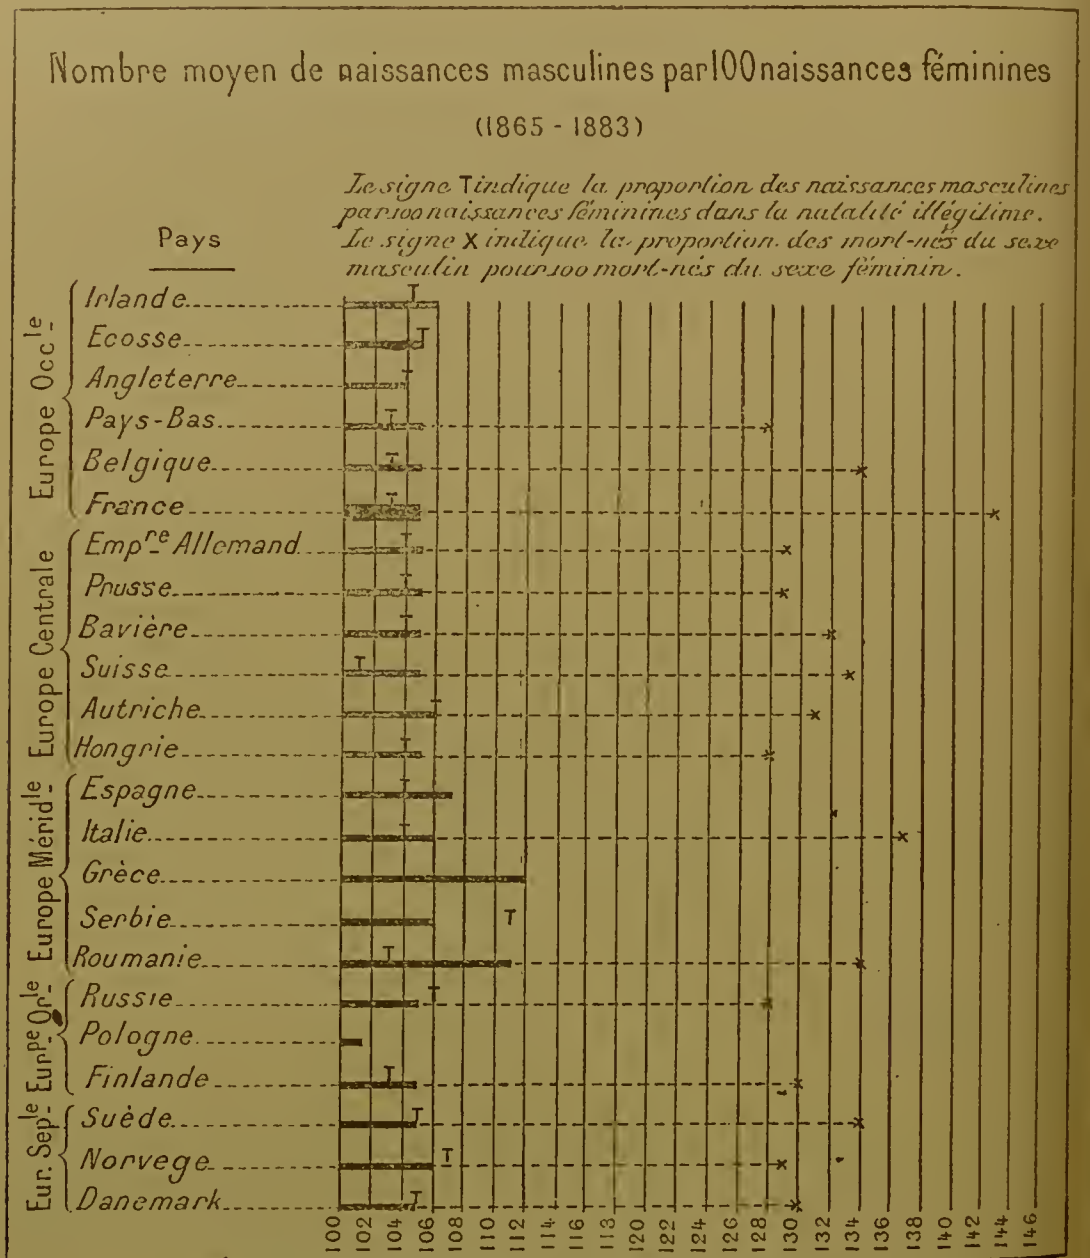 Nombre moyen de naissances masculines par 100 naissances féminines
(1865 - 1883)
Le signe T indique la proportion des naissances masculines
par 100 naissances féminines dans la natalité illégitime.
Le signe X indique la proportion des mort-nés du sexe
masculin pour 100 mort-nés du sexe féminin.
Pays
Europe Occle
Irlande
Ecosse
Angleterre
Pays-Bas
Belgique
France
Europe Centrale
Empre Allemand
Prusse
Bavière
Suisse
Autriche
Hongrie
Europe Méridle
Espagne
Italie
Grèce
Serbie
Roumanie
Eurpe Orle
Russie
Pologne
Finlande
Eur. Seple
Suède
Norvege
Danemark
100 102 104 106 108 110 112 114 116 113 120 122 124 126 128 130 132 134 136 138 140 142 144 146